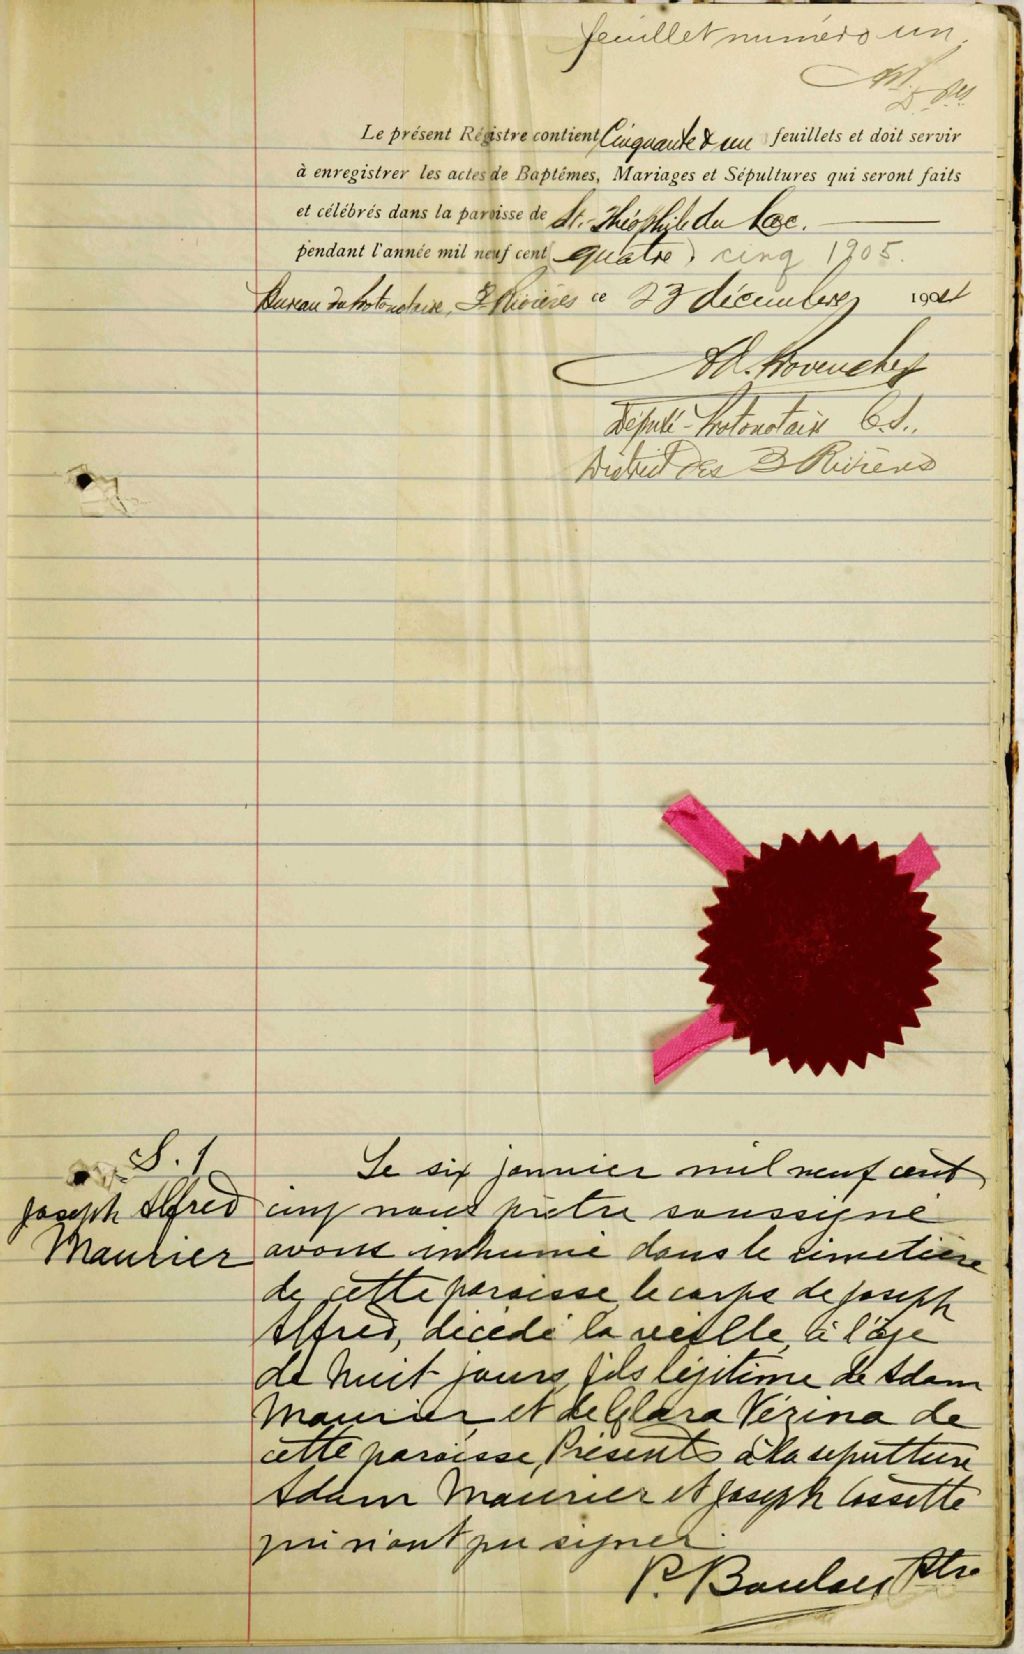 feuillet numéro un.
Le présent Régistre contient Cinquante & un feuillets et doit servir
à enregistrer les actes de Baptêmes, Mariages et Sépultures qui seront faits
et célébrés dans la paroisse de St.-Théophile du Lac.
pendant l'année mil neuf cent (quatre) cinq 1905.
Bureau du Protonotaire, 3 Rivières ce 23 décembre 1904
Ad. Provencher
Député-Protonotaire C.S.,
District des 3 Rivières
S. 1
Joseph Alfred
Maurier
Le six janvier mil neuf cent
cinq nous prêtre soussigné
avons inhumé dans le cimetière
de cette paroisse le corps de Joseph
Alfred, décédé la veille, à l'âge
de huit jours, fils légitime de Adam
Maurier et de Clara Vézina de
cette paroisse, Présents à la sepulture
Adam Maurier et Joseph Cossette
qui n'ont pu signer.
P. Boulay Ptre